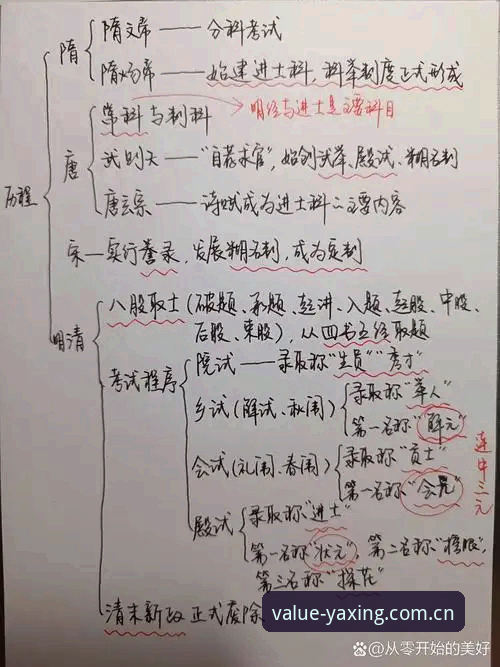 历程
隋
隋文帝——分科考试
隋炀帝——始建进士科，科举制度正式形成
唐
常科与制科
明经与进士是主要科目
武则天——"自荐求官"，始创武举、殿试、糊名制
唐玄宗——诗赋成为进士科的主要内容
宋—实行誊录，发展糊名制，成为定制
明清
八股取士（破题、承题、起讲、入题、起股、中股、
后股、束股），从四书五经取题
考试程序
院试——录取称"生员""秀才"
乡试（解试、秋闱）
录取称"举人"
第一名称"解元"
会试（礼闱、春闱）
录取称"贡士"
第一名称"会元"
连中三元
殿试
录取称"进士"
第一名称"状元"，第二名称"榜眼"，
第三名称"探花"
清末新政 正式废除
value-yaxing.com.cn
@从零开始的美好